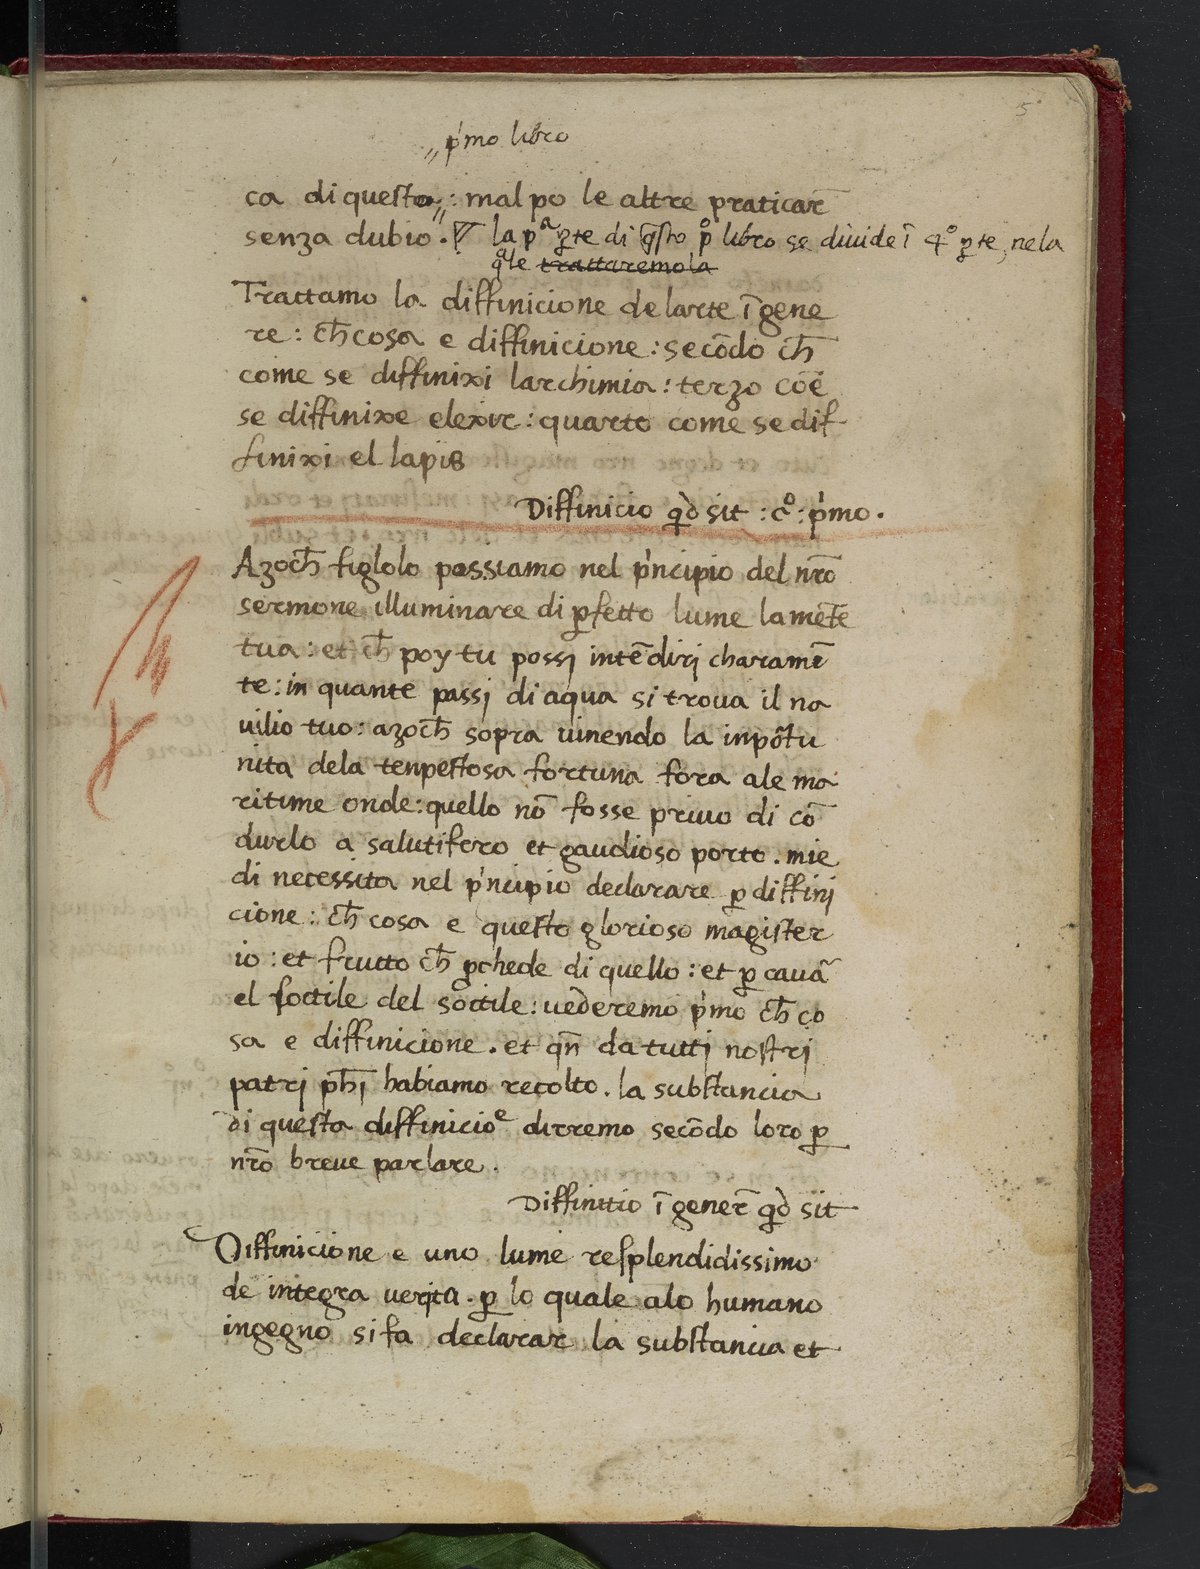 5
„ p'mo libro
ca di questa„: mal po le altre praticar̄
senza dubio. la pᵃ ꝑte di q̄sto pº libro se diuide ī 4º ꝑte, nela
qᵃle trattaremo la
Trattamo la diffinicione de larte ī gene
re: ch̄ cosa e diffinicione: secōdo ch̄
come se diffinixi larchimia: terzo cōe
se diffinixe elexir: quarto come se dif
finixi el lapis
Diffinicio qd̄ sit: cº: p'mo.
Azoch̄ figlolo possiamo nel p'ncipio del nr̄o
sermone illuminare di ꝑfetto lume la mēte
tua: et ch̄ poy tu possj intēdirj charamē
te: in quante passi di aqua si troua il na
uilio tuo: azoch̄ sopra uinendo la inpōtu
nita dela tenpestosa fortuna fora ale ma
ritime onde: quello nō fosse priuo di cō
durlo a salutifero et gaudioso porto. mie
di necessita nel p'ncipio declarare ꝑ diffinj
cione: ch̄ cosa e questo glorioso magister
io: et frutto ch̄ ꝓchede di quello: et ꝑ cauā
el soctile del soctile: uederemo p'mo ch̄ co
sa e diffinicione. et qn̄ da tuttj nostrj
patri ph̄j habiamo recolto. la substancia
di questa diffinicioᵉ dirremo secōdo loro ꝑ
nr̄o breue parlare.
Diffinitio ī gener̄ qd̄ sit
Diffinicione e uno lume resplendidissimo
de integra verita. ꝑ lo quale alo humano
ingegno si fa declarar la substancia et